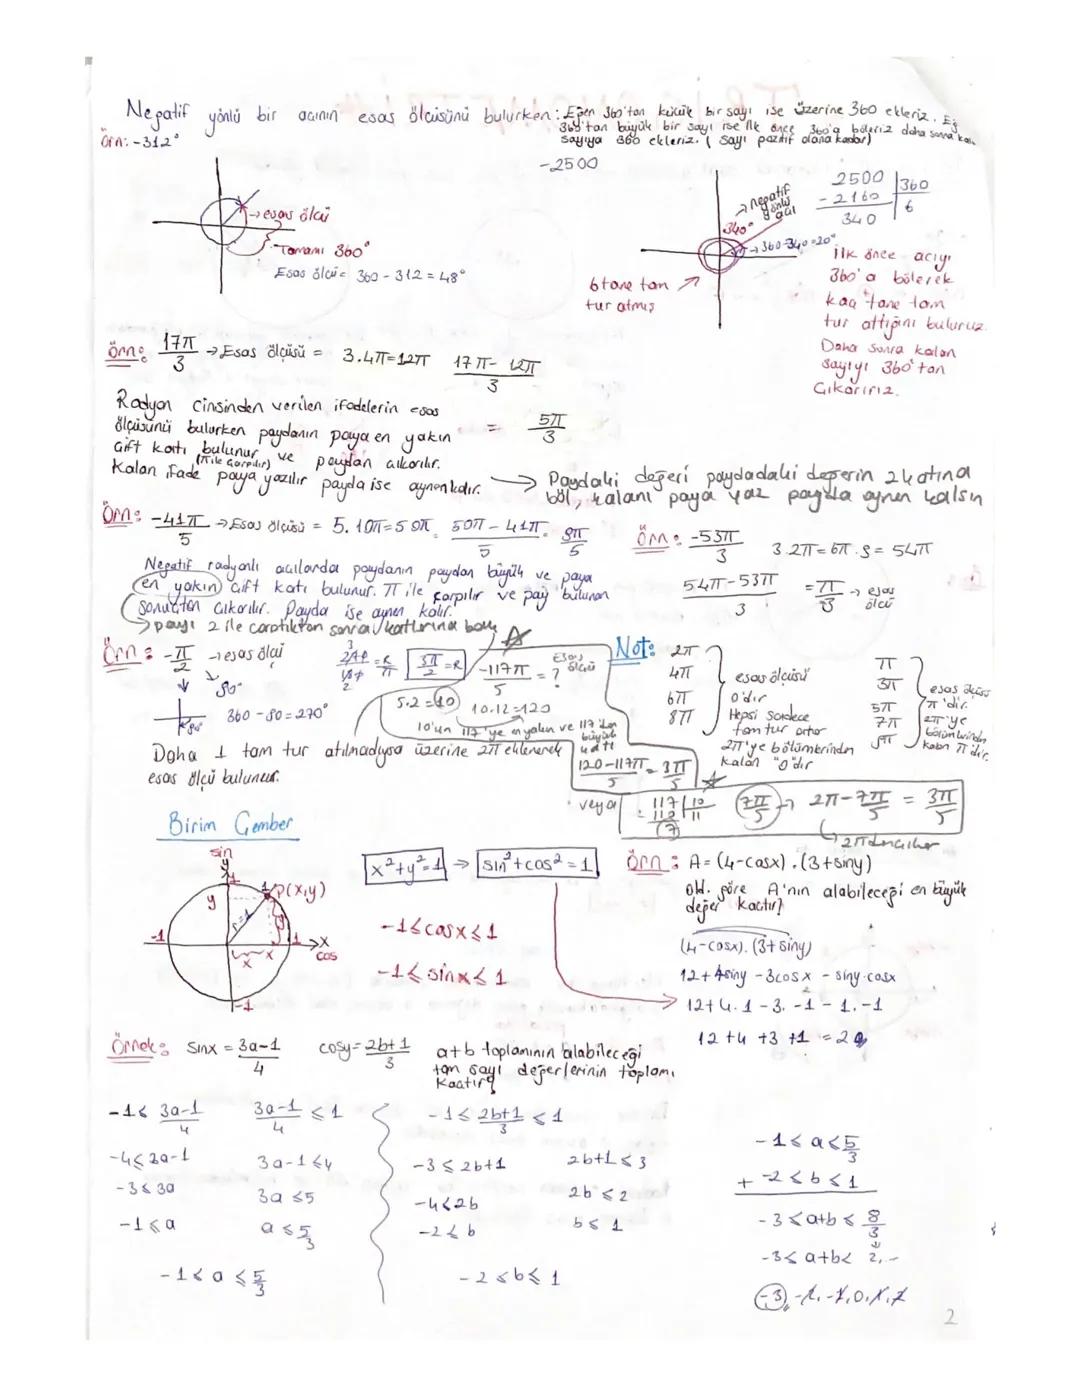 Negatif yönlü bir açının esas ölçüsünü bulurken: Eğer 360'tan küçük bir sayı ise üzerine 360 ekleriz. Eğ
360'tan büyük bir sayı ise ilk önce 360'a böleriz daha sonra kal.
sayıya 360 ekleriz. (sayı pozitif olana kadar)
Örn: -312°
→esas ölçü
Tamamı 360°
Esas ölçü = 360 - 312 = 48°
-2500
→negatif yönlü açı
340°
→360-340=20°
6 tane tam
tur atmış
2500 | 360
- 2160 | 6
340
ilk önce açıyı
360'a bölerek
kaç tane tam
tur attığını buluruz.
Daha sonra kalan
sayıyı 360'tan
Çıkarırız.
Örn: 17π/3 → Esas ölçüsü = 3.4π=12π (17π-12π)/3
= 5π/3
Radyan cinsinden verilen ifadelerin esas
ölçüsünü bulurken paydanın paya en yakın
çift katı bulunur ve paydan çıkarılır.
(π ile çarpılır)
Kalan ifade paya yazılır payda ise aynen kalır.
→ Paydaki değeri paydadaki değerin 2 katına
böl, kalanı paya yaz payda aynen kalsın
Örn: -41π/5 → Esas ölçüsü = 5.10π=50π (50π-41π)/5 = 9π/5
Negatif radyanlı açılarda paydanın paydan büyük ve paya
en yakın çift katı bulunur. π ile çarpılır ve pay bulunan
sonuçtan çıkarılır. Payda ise aynen kalır.
→ payı 2 ile çarptıktan sonra katlarına bak
Örn: -53π/3 3.2π=6π.9=54π
(54π-53π)/3 = π/3 → esas ölçü
Örn: -π/2 → esas ölçü
90°
360-90=270°
3π/2 = R
Daha 1 tam tur atılmadıysa üzerine 2π eklenerek
esas ölçü bulunur.
-117π/5 = ? Esas ölçü
5.2=10 10.12=120
10'un 117'ye en yakın ve 117'den
büyük katı
(120-117π)/5 = 3π/5
veya
117 | 10
11
7
7π/5 → 2π-7π/5 = 3π/5
Not:
2π
4π
6π
8π
esas ölçüsü
0'dır
Hepsi sadece
tam tur atar
2π'ye bölümünden
kalan "0"dır
π
3π
5π
7π
9π
esas ölçüsü
π'dir.
2π'ye
bölümünden
kalan π'dir.
Birim Çember
sin
y
1
P(x,y)
y
-1
1
x
cos
x
-1
x²+y²=1 → sin²+cos²=1
-1≤cosx≤1
-1≤sinx≤1
Örn: A=(4-cosx).(3+siny)
old. göre A'nın alabileceği en büyük
değer kaçtır?
(4-cosx).(3+siny)
12+4siny-3cosx-siny.cosx
12+4.1-3.-1-1.-1
12+4+3+1=20
Örnek: sinx = (3a-1)/4 cosy = (2b+1)/3 a+b toplamının alabileceği
tam sayı değerlerinin toplamı
kaçtır?
-1≤ (3a-1)/4 (3a-1)/4 ≤1
-4≤3a-1 3a-1≤4
-3≤3a 3a≤5
-1≤a a≤5/3
-1≤a≤5/3
-1≤ (2b+1)/3 ≤1
-3≤2b+1 2b+1≤3
-4≤2b 2b≤2
-2≤b b≤1
-2≤b≤1
-1≤a≤5/3
+ -2≤b≤1
-3≤a+b≤8/3
-3≤a+b< 2,-
-3, -2, -1, 0, 1, 2
2